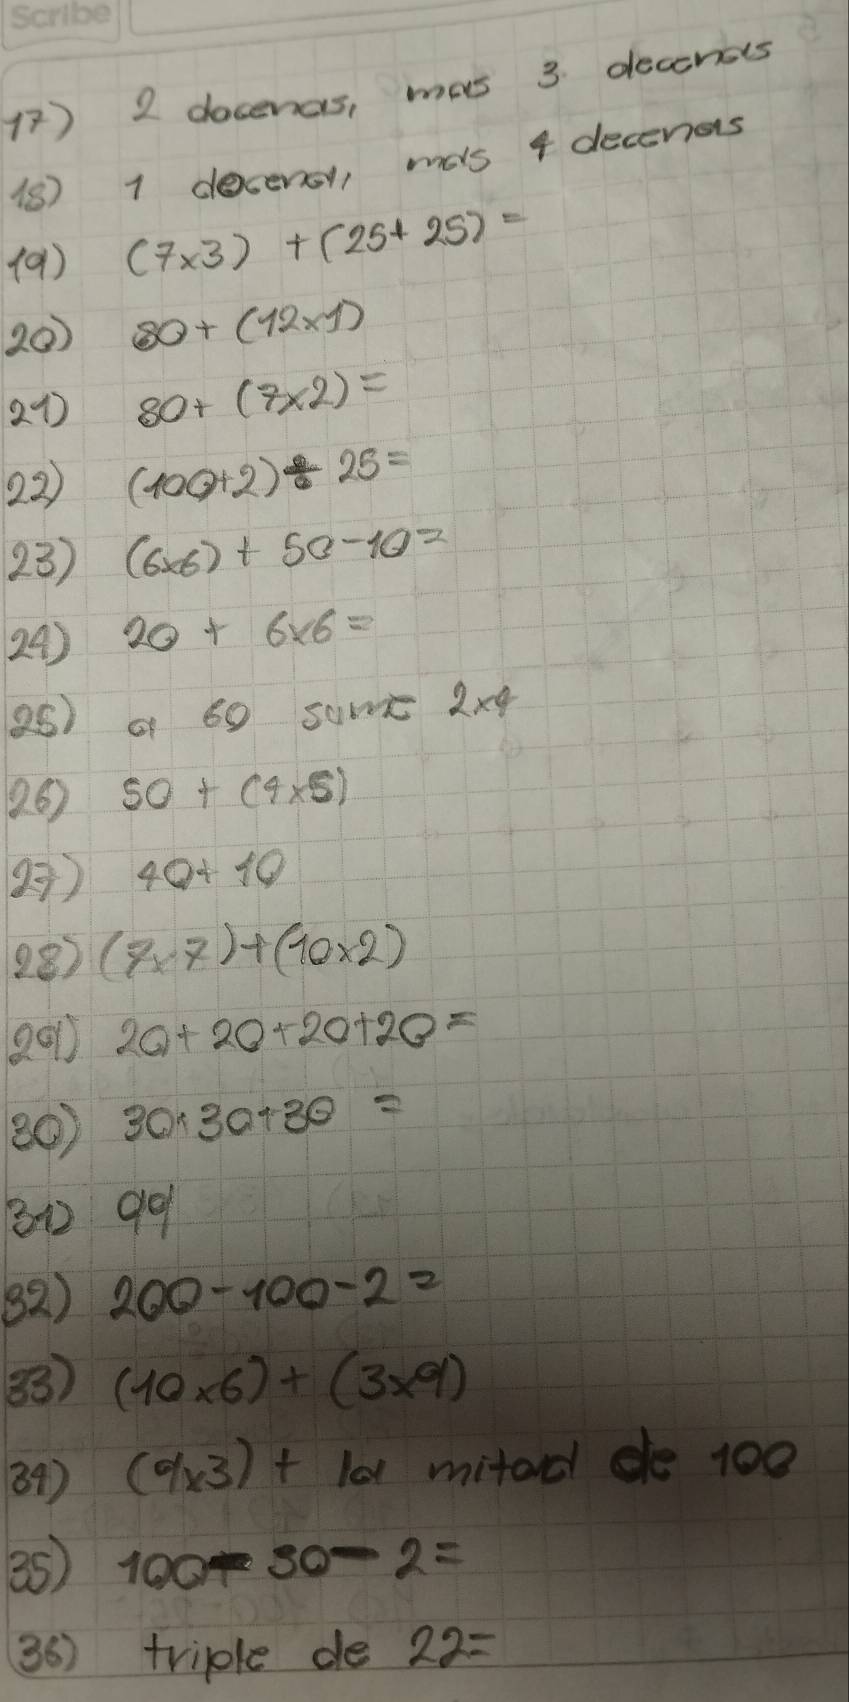 Scribe
17) 2 docenas, mas 3 decenas
18) 1 docena, mas 4 decenas
19) (7x3) + (25+ 25) =
20) 80+ (12x1)
21) 80+ (7x2) =
22) (100+2) ÷ 25=
23) (6x6) + 50-10=
24) 20 + 6x6=
25) a 60 sume 2x4
26) 50 + (4x5)
27) 40+ 10
28) (7x7)+(10x2)
29) 20+20+20+20=
30) 30+30+30 =
31) 99
32) 200-100-2=
33) (10x6)+ (3x9)
34) (9x3)+ la mitad de 100
35) 100-50-2=
36) triple de 22=